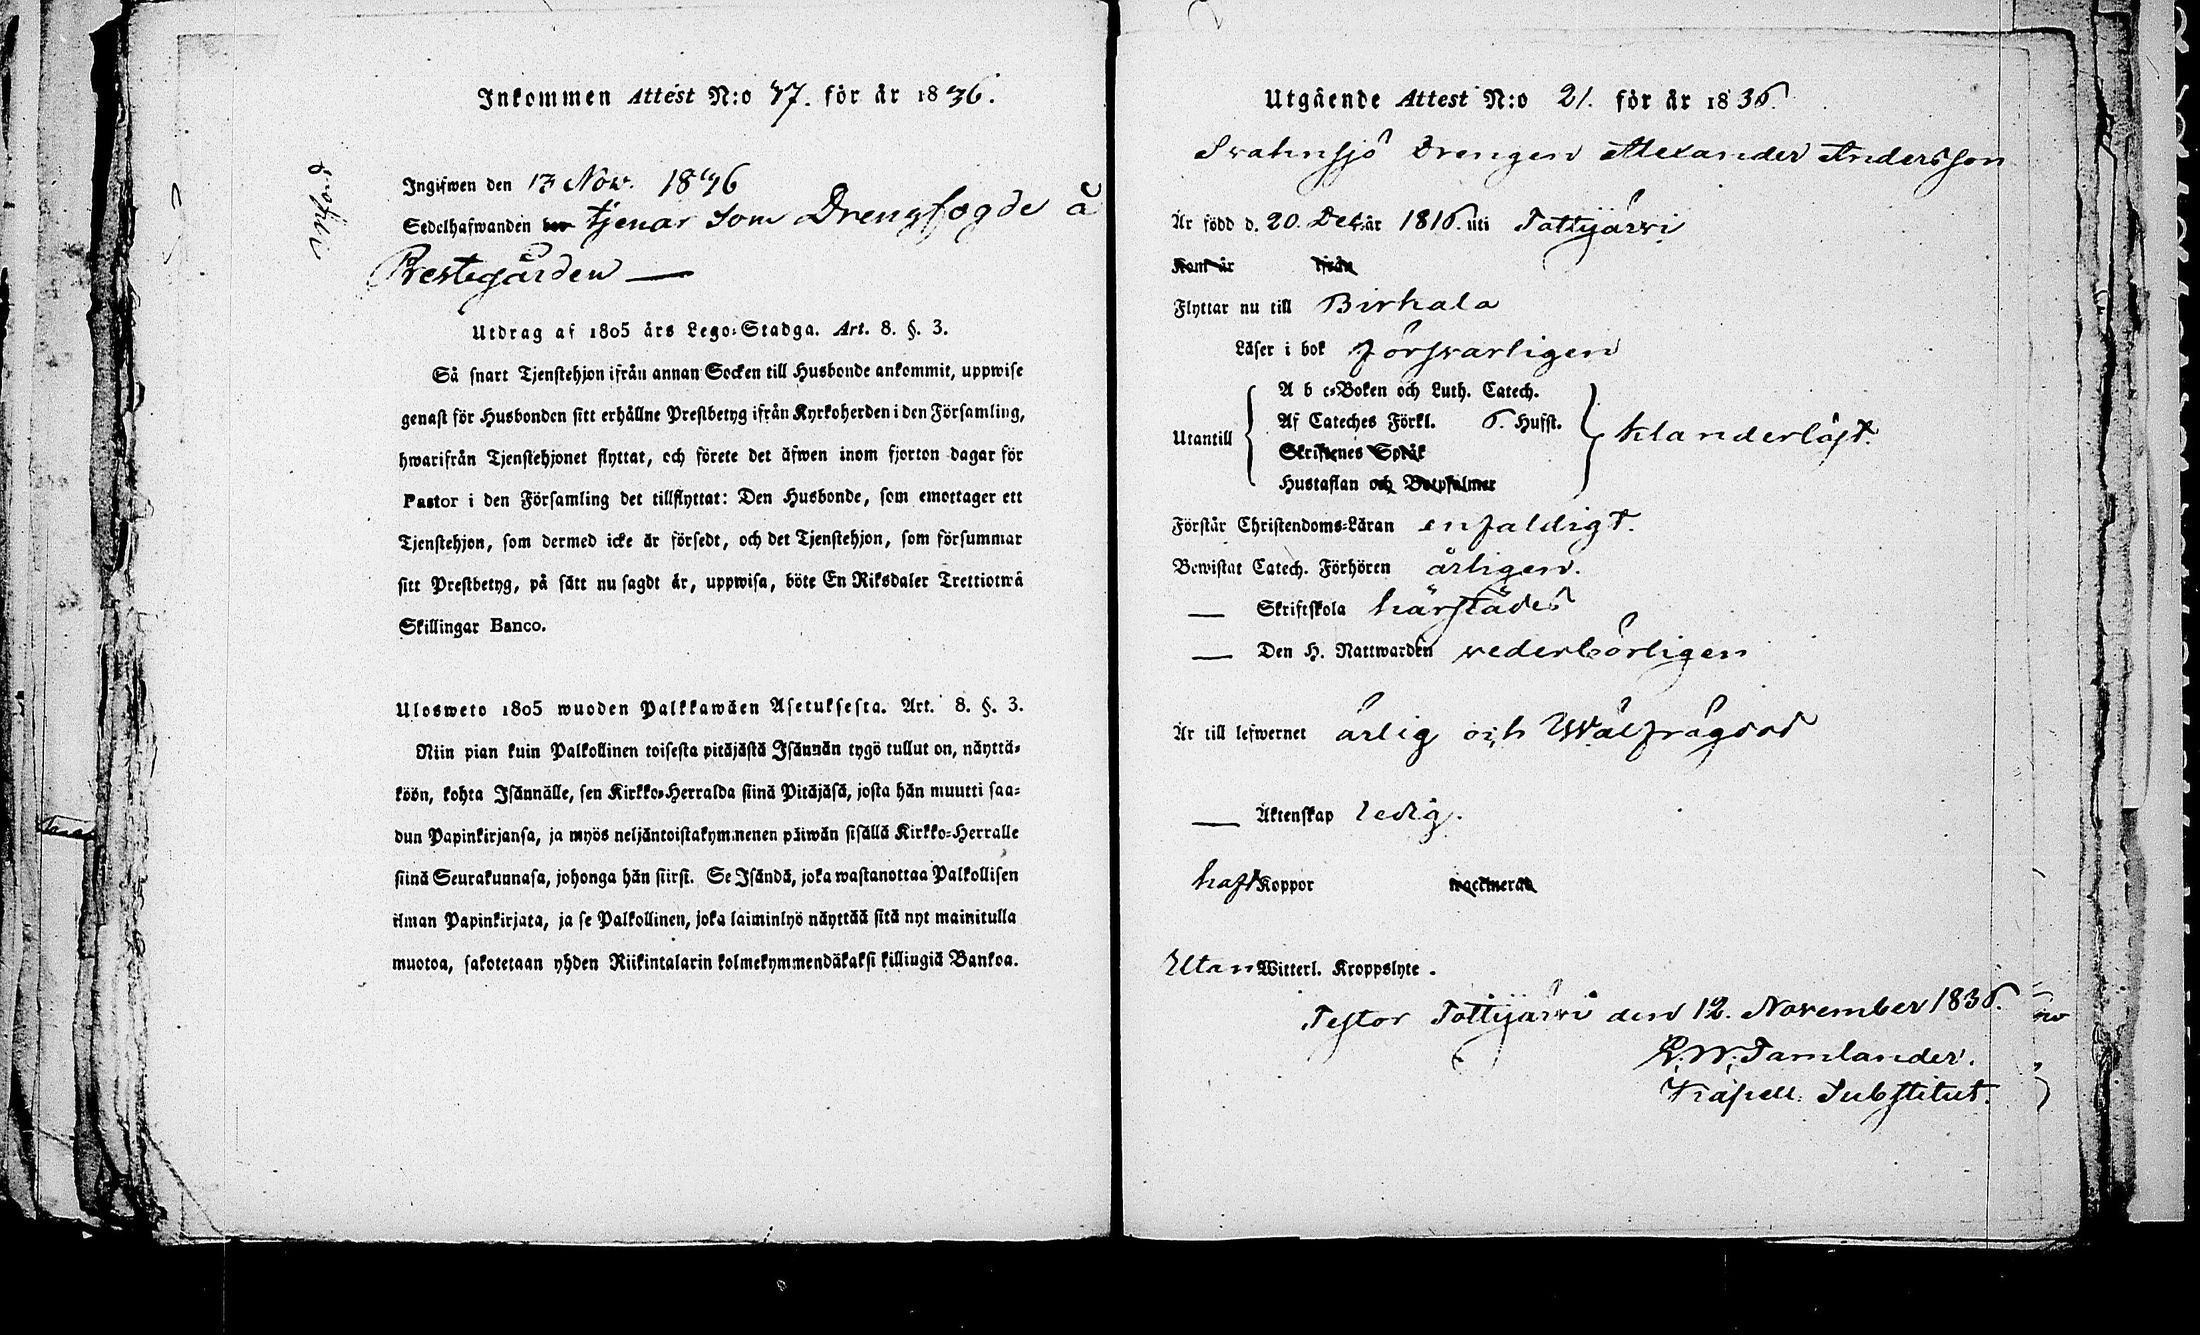 Inkommen Attest N:o 77. för år 1836.
Införd
Ingifwen den 13 Nov. 1836
Sedelhafwanden bor tjenar som Drengfogde å
Prestegården —
Utdrag af 1805 års Lego-Stadga. Art. 8. §. 3.
Så snart Tjenstehjon ifrån annan Socken till Husbonde ankommit, uppwise
genast för Husbonden sitt erhållne Prestbetyg ifrån Kyrkoherden i den Församling,
hwarifrån Tjenstehjonet flyttat, och förete det äfwen inom fjorton dagar för
Pastor i den Församling det tillflyttat: Den Husbonde, som emottager ett
Tjenstehjon, som dermed icke är försedt, och det Tjenstehjon, som försummar
sitt Prestbetyg, på sätt nu sagdt är, uppwisa, böte En Riksdaler Trettiotwå
Skillingar Banco.
Ulosweto 1805 wuoden Palkkawäen Asetuksesta. Art. 8. §. 3.
Niin pian kuin Palkollinen toisesta pitäjästä Isännän tygö tullut on, näyttä-
köön, kohta Isännälle, sen Kirkko-Herralda siinä Pitäjäsä, josta hän muutti saa-
dun Papinkirjansa, ja myös neljäntoistakymmenen päiwän sisällä Kirkko-Herralle
siinä Seurakunnasa, johonga hän siirsi. Se Isändä, joka wastanottaa Palkollisen
ilman Papinkirjata, ja se Palkollinen, joka laiminlyö näyttää sitä nyt mainitulla
muotoa, sakotetaan yhden Riikintalarin kolmekymmendäkaksi killingiä Bankoa.
Utgående Attest N:o 21. för år 1836.
Svahnsjö Drengen Alexander Andersson
Är född d. 20. Dec. år 1816. uti Tottijärvi
Kom år ifrån
Flyttar nu till Birkala
Läser i bok försvarligen
A b c-Boken och Luth. Catech.
Af Cateches Förkl. 6. Hufst.
Utantill klanderlöst.
Skriftenes Språk
Hustaflan och Botpsalmer
Förstår Christendoms-Läran enfaldigt.
Bewistat Catech. Förhören årligen.
— Skriftskola härstädes
— Den H. Nattwarden vederbörligen
Är till lefwernet ärlig och Wälfrägdad
— Äktenskap ledig.
haft Koppor vaccinerad
Utan Witterl. Kroppslyte.
Testor Tottijärvi den 12. November 1836.
K. W. Tamlander.
Kapell. Substitut.